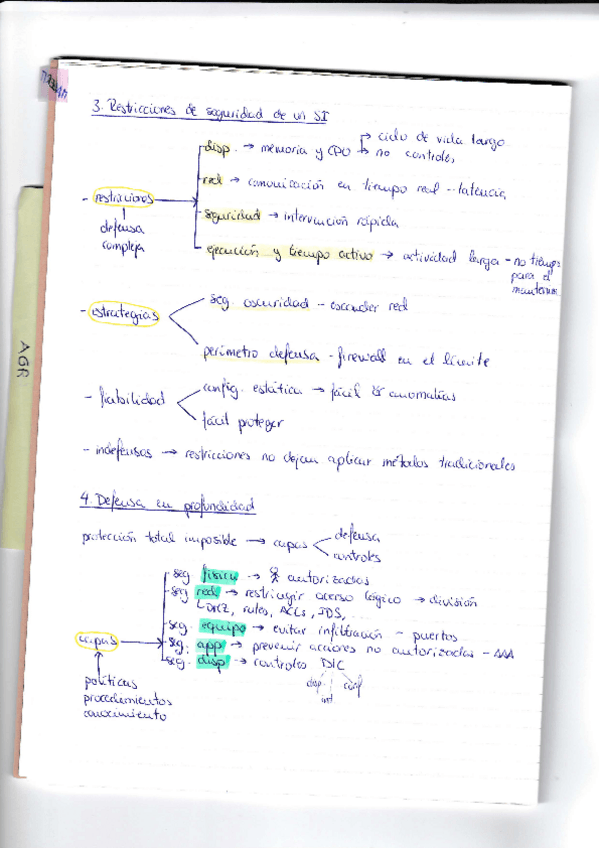 3. Restricciones de seguridad de un SI
- restricciones
defensa
compleja
disp. → memoria y CPU → ciclo de vida largo
→ no controles
red → comunicación en tiempo real - latencia
seguridad → intervención rápida
ejecución y tiempo activo → actividad larga - no tiempo
para el
- estrategias
seg. oscuridad - esconder red
perímetro defensa - firewall en el límite
- fiabilidad
config. estática → fácil anomalías
fácil proteger
- indefensos → restricciones no dejan aplicar métodos tradicionales
4. Defensa en profundidad
protección total imposible → capas
defensa
controles
capas
seg. física → autorizados
seg. red → restringir acceso lógico → división
DMZ, rutes, ACLs, IDS, ...
seg. equipo → evitar infiltración - puertos
seg. app → prevenir acciones no autorizadas - AAA
seg. disp → controles DIC
disp int conf
políticas
procedimientos
conocimiento
AGR